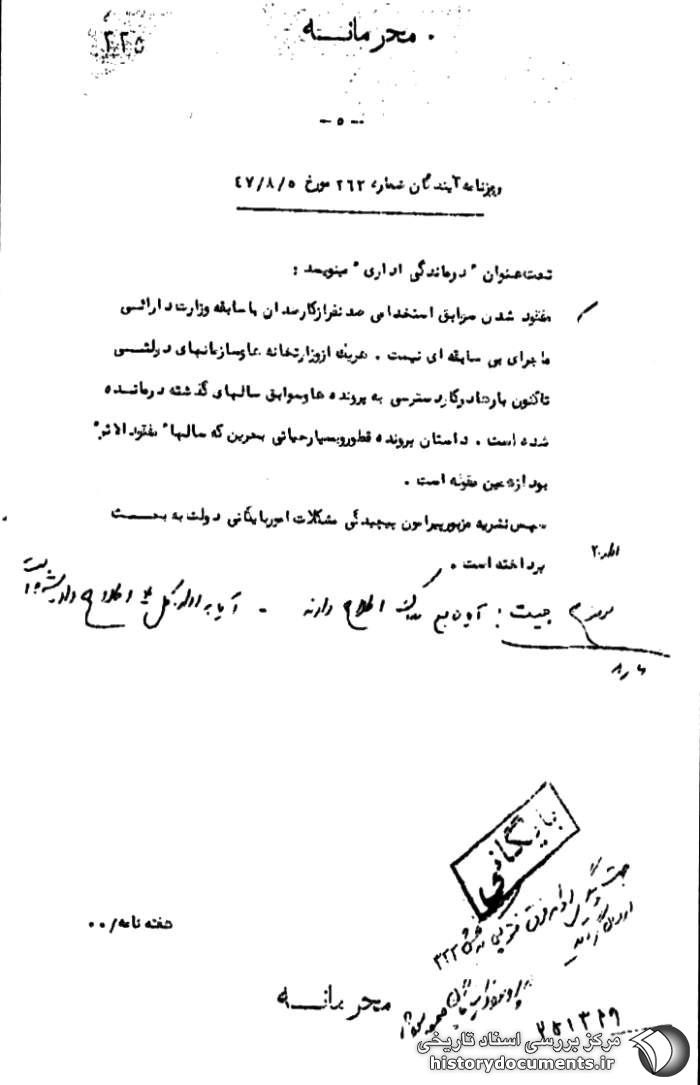 محرمانه
۲۲۵
-۵-
ویژنامه آیندگان شماره ۲۶۲ مورخ ۴۷/۸/۵
تحت عنوان "درماندگی اداری" مینویسد :
مفقود شدن سوابق استخدامی صد نفر از کارمندان با سابقه وزارت دارائی
ماجرای بی سابقه ای نیست . هریک از وزارتخانه ها و سازمانهای دولتی
تاکنون بارها در کار دسترسی به پرونده ها و سوابق سالهای گذشته درمانده
شده است . داستان پرونده قطور و بسیار حیاتی بحرین که سالها "مفقود الاثر"
بود از همین مقوله است .
سپس نشریه مزبور پیرامون پیچیدگی مشکلات امور بایگانی دولت به بحث
پرداخته است .
چیست : اطلاع دارند - آیا به اداره کل اطلاع
۸/۶
بایگانی
هفته نامه/۰۰
محرمانه
مرکز بررسی اسناد تاریخی
historydocuments.ir